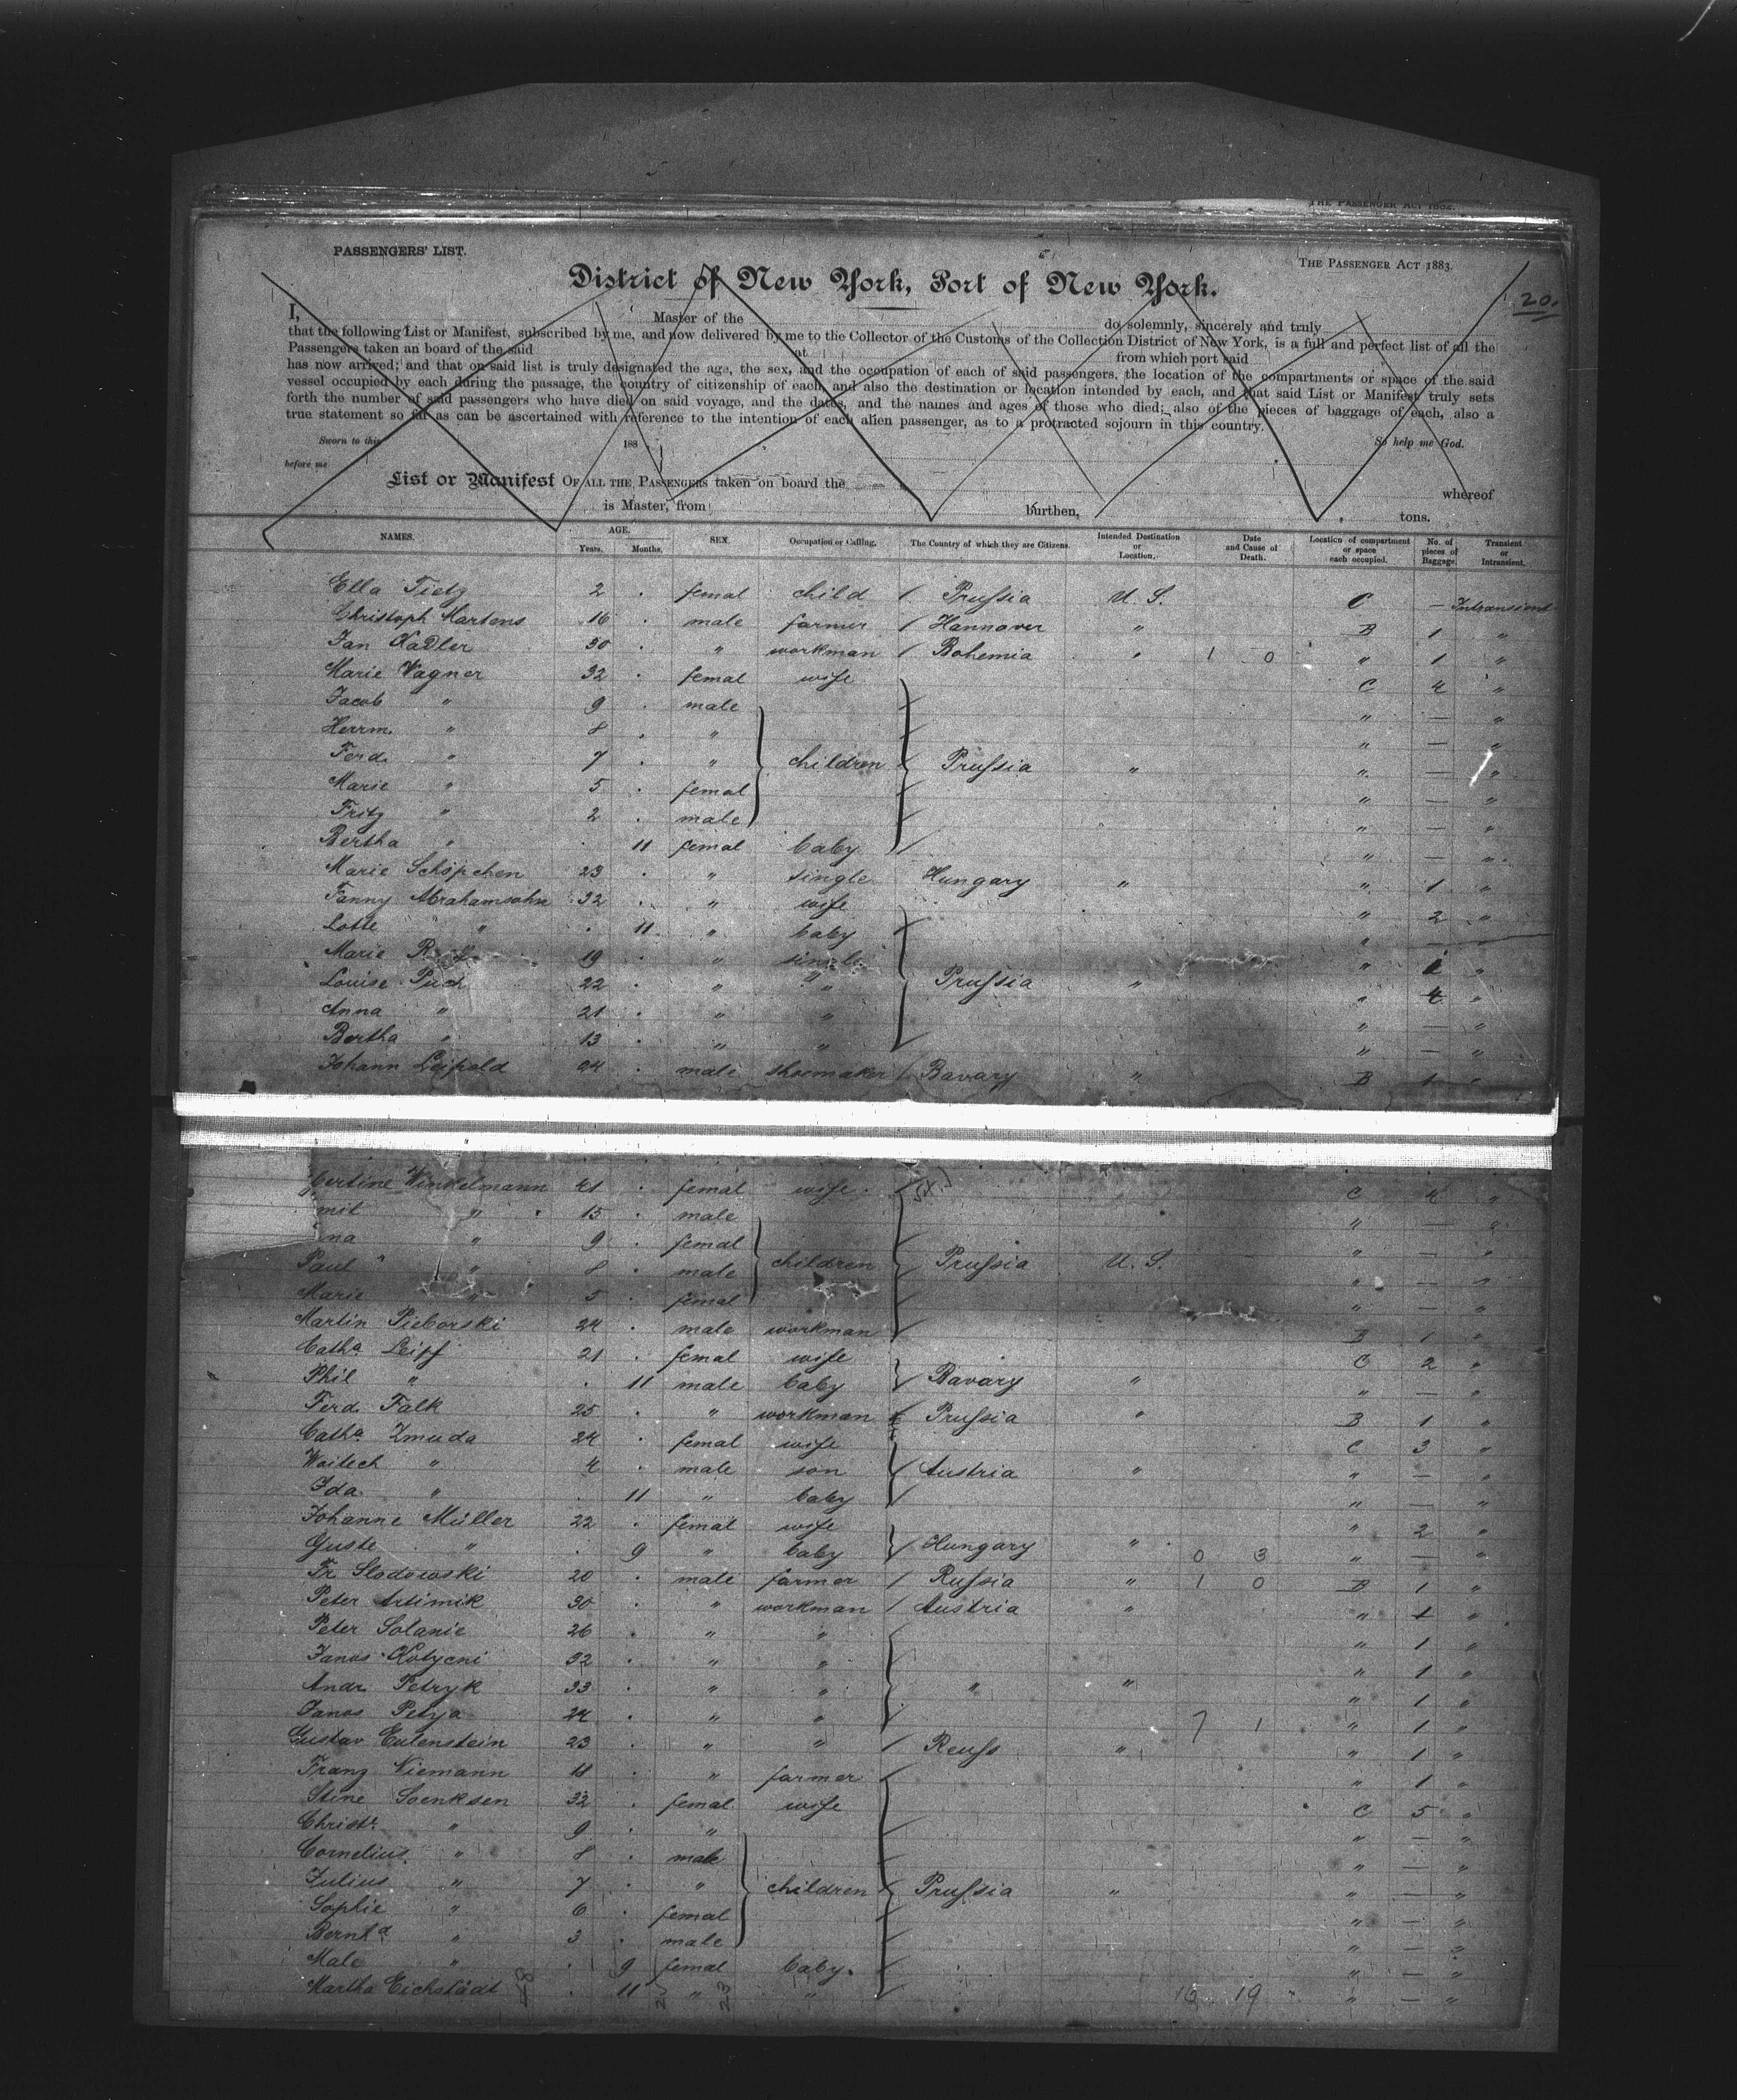 THE PASSENGER ACT 1882.
PASSENGERS' LIST.
THE PASSENGER ACT 1883.
District of New York, Port of New York.
20.
I, Master of the do solemnly, sincerely and truly
that the following List or Manifest, subscribed by me, and now delivered by me to the Collector of the Customs of the Collection District of New York, is a full and perfect list of all the
Passengers taken an board of the said at from which port said
has now arrived; and that on said list is truly designated the age, the sex, and the occupation of each of said passengers, the location of the compartments or space of the said
vessel occupied by each during the passage, the country of citizenship of each, and also the destination or location intended by each, and that said List or Manifest truly sets
forth the number of said passengers who have died on said voyage, and the dates, and the names and ages of those who died; also of the pieces of baggage of each, also a
true statement so far as can be ascertained with reference to the intention of each alien passenger, as to a protracted sojourn in this country.
Sworn to this 188 So help me God.
before me
List or Manifest OF ALL THE PASSENGERS taken on board the whereof
is Master, from burthen, tons.
NAMES. AGE. Years. Months. SEX. Occupation or Calling. The Country of which they are Citizens. Intended Destination or Location. Date and Cause of Death. Location of compartment or space each occupied. No. of pieces of Baggage. Transient or Intransient.
Ella Tietz 2 . femal child / Prussia U. S. C — Intransient
Christoph Martens 16 . male farmer / Hannover " B 1 "
Jan Kadler 30 . " workman / Bohemia " 1 0 " 1 "
Marie Wagner 32 . femal wife C 4 "
Jacob " 9 . male " — "
Herrm. " 8 . " " — "
Ferd. " 7 . " children Prussia " " — "
Marie " 5 . femal " — "
Fritz " 2 . male " — "
Bertha " . 11 femal baby " — "
Marie Schöpchen 23 . " single Hungary " " 1 "
Fanny Abrahamsohn 32 . " wife " 2 "
Lotte " . 11 " baby " — "
Marie 19 . " single " 1 "
Louise Puch 22 . " " Prussia " " 4 "
Anna " 21 . " " " — "
Bertha " 13 . " " " — "
Johann Leipold 24 . male shoemaker / Bavary " B 1 "
Winkelmann 41 . femal wife C 4 "
mil " 15 . male " — "
na " 9 . femal " — "
Paul " 8 . male children Prussia U. S. " — "
Marie " 5 . femal " — "
Martin Pieborski 24 . male workman B 1 "
Catha Leipf 21 . femal wife C 2 "
Phil " . 11 male baby Bavary " " — "
Ferd. Falk 25 . " workman Prussia " B 1 "
Catha Zmuda 24 . femal wife C 3 "
Woitech " 4 . male son Austria " " — "
Ida " . 11 " baby " — "
Johanne Müller 22 . femal wife " 2 "
Guste " . 9 " baby Hungary " 0 3 " — "
Fr. Slodowski 20 . male farmer / Russia " 1 0 B 1 "
Peter Artimik 30 . " workman / Austria " " 1 "
Peter Solanic 26 . " " " 1 "
Janos Kotycni 32 . " " " 1 "
Andr. Petryk 33 . " " " " " 1 "
Janos Petya 24 . " " 7 1 " 1 "
Gustav Eulenstein 23 . " " / Reuss " " 1 "
Franz Niemann 18 . " farmer " 1 "
Stine Soenksen 32 . femal wife C 5 "
Christ. " 9 . " " — "
Cornelius " 8 . male " — "
Julius " 7 . " children Prussia " " — "
Sophie " 6 . femal " — "
Bernhd " 3 . male " — "
Male " . 9 femal baby. " — "
Martha Eichstädt . 11 " " 16 19 " — "